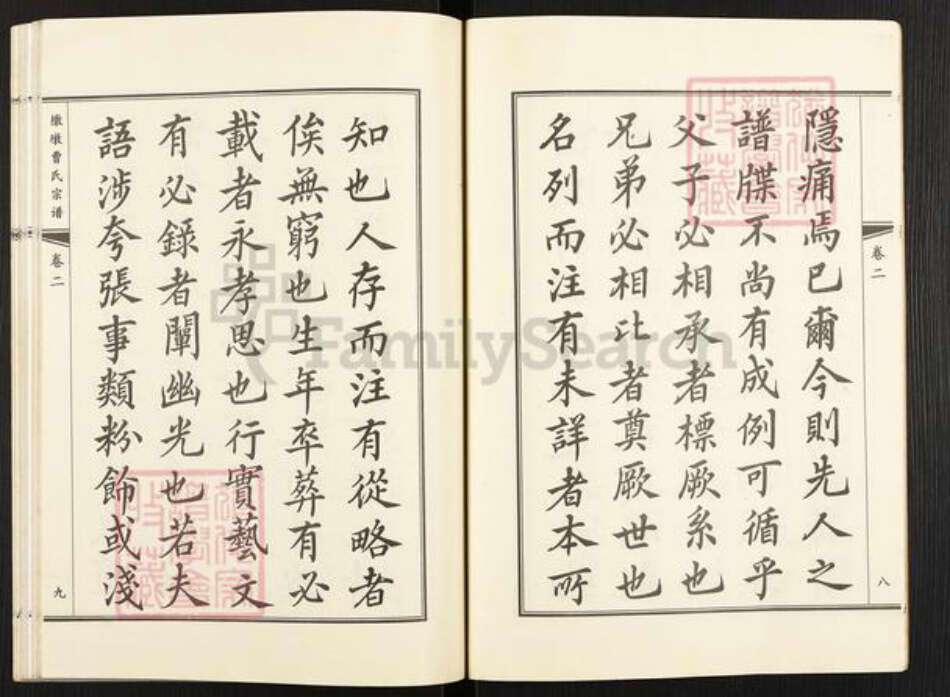 卷二
八
隱痛焉已爾今則先人之
譜牒不尚有成例可循乎
父子必相承者標厥系也
兄弟必相比者奠厥世也
名列而注有未詳者本所
知也人存而注有從略者
俟無窮也生年卒葬有必
載者永孝思也行實藝文
有必錄者闡幽光也若夫
語涉夸張事類粉飾或淺
墩曹氏宗谱
卷二
九
FamilySearch